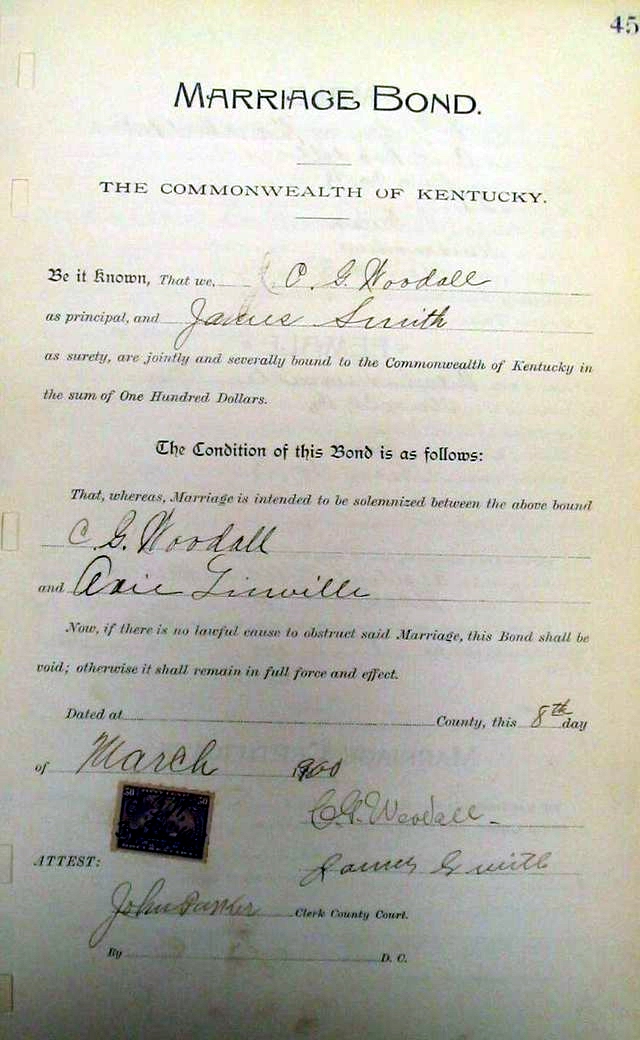 45
MARRIAGE BOND.
THE COMMONWEALTH OF KENTUCKY.
Be it Known, That we, C. G. Woodall
as principal, and James Smith
as surety, are jointly and severally bound to the Commonwealth of Kentucky in
the sum of One Hundred Dollars.
The Condition of this Bond is as follows:
That, whereas, Marriage is intended to be solemnized between the above bound
C. G. Woodall
and Axie Linville
Now, if there is no lawful cause to obstruct said Marriage, this Bond shall be
void; otherwise it shall remain in full force and effect.
Dated at County, this 8th day
of March 1900
C. G. Woodall
50 50
ATTEST: James Smith
John Clerk County Court.
By D. C.